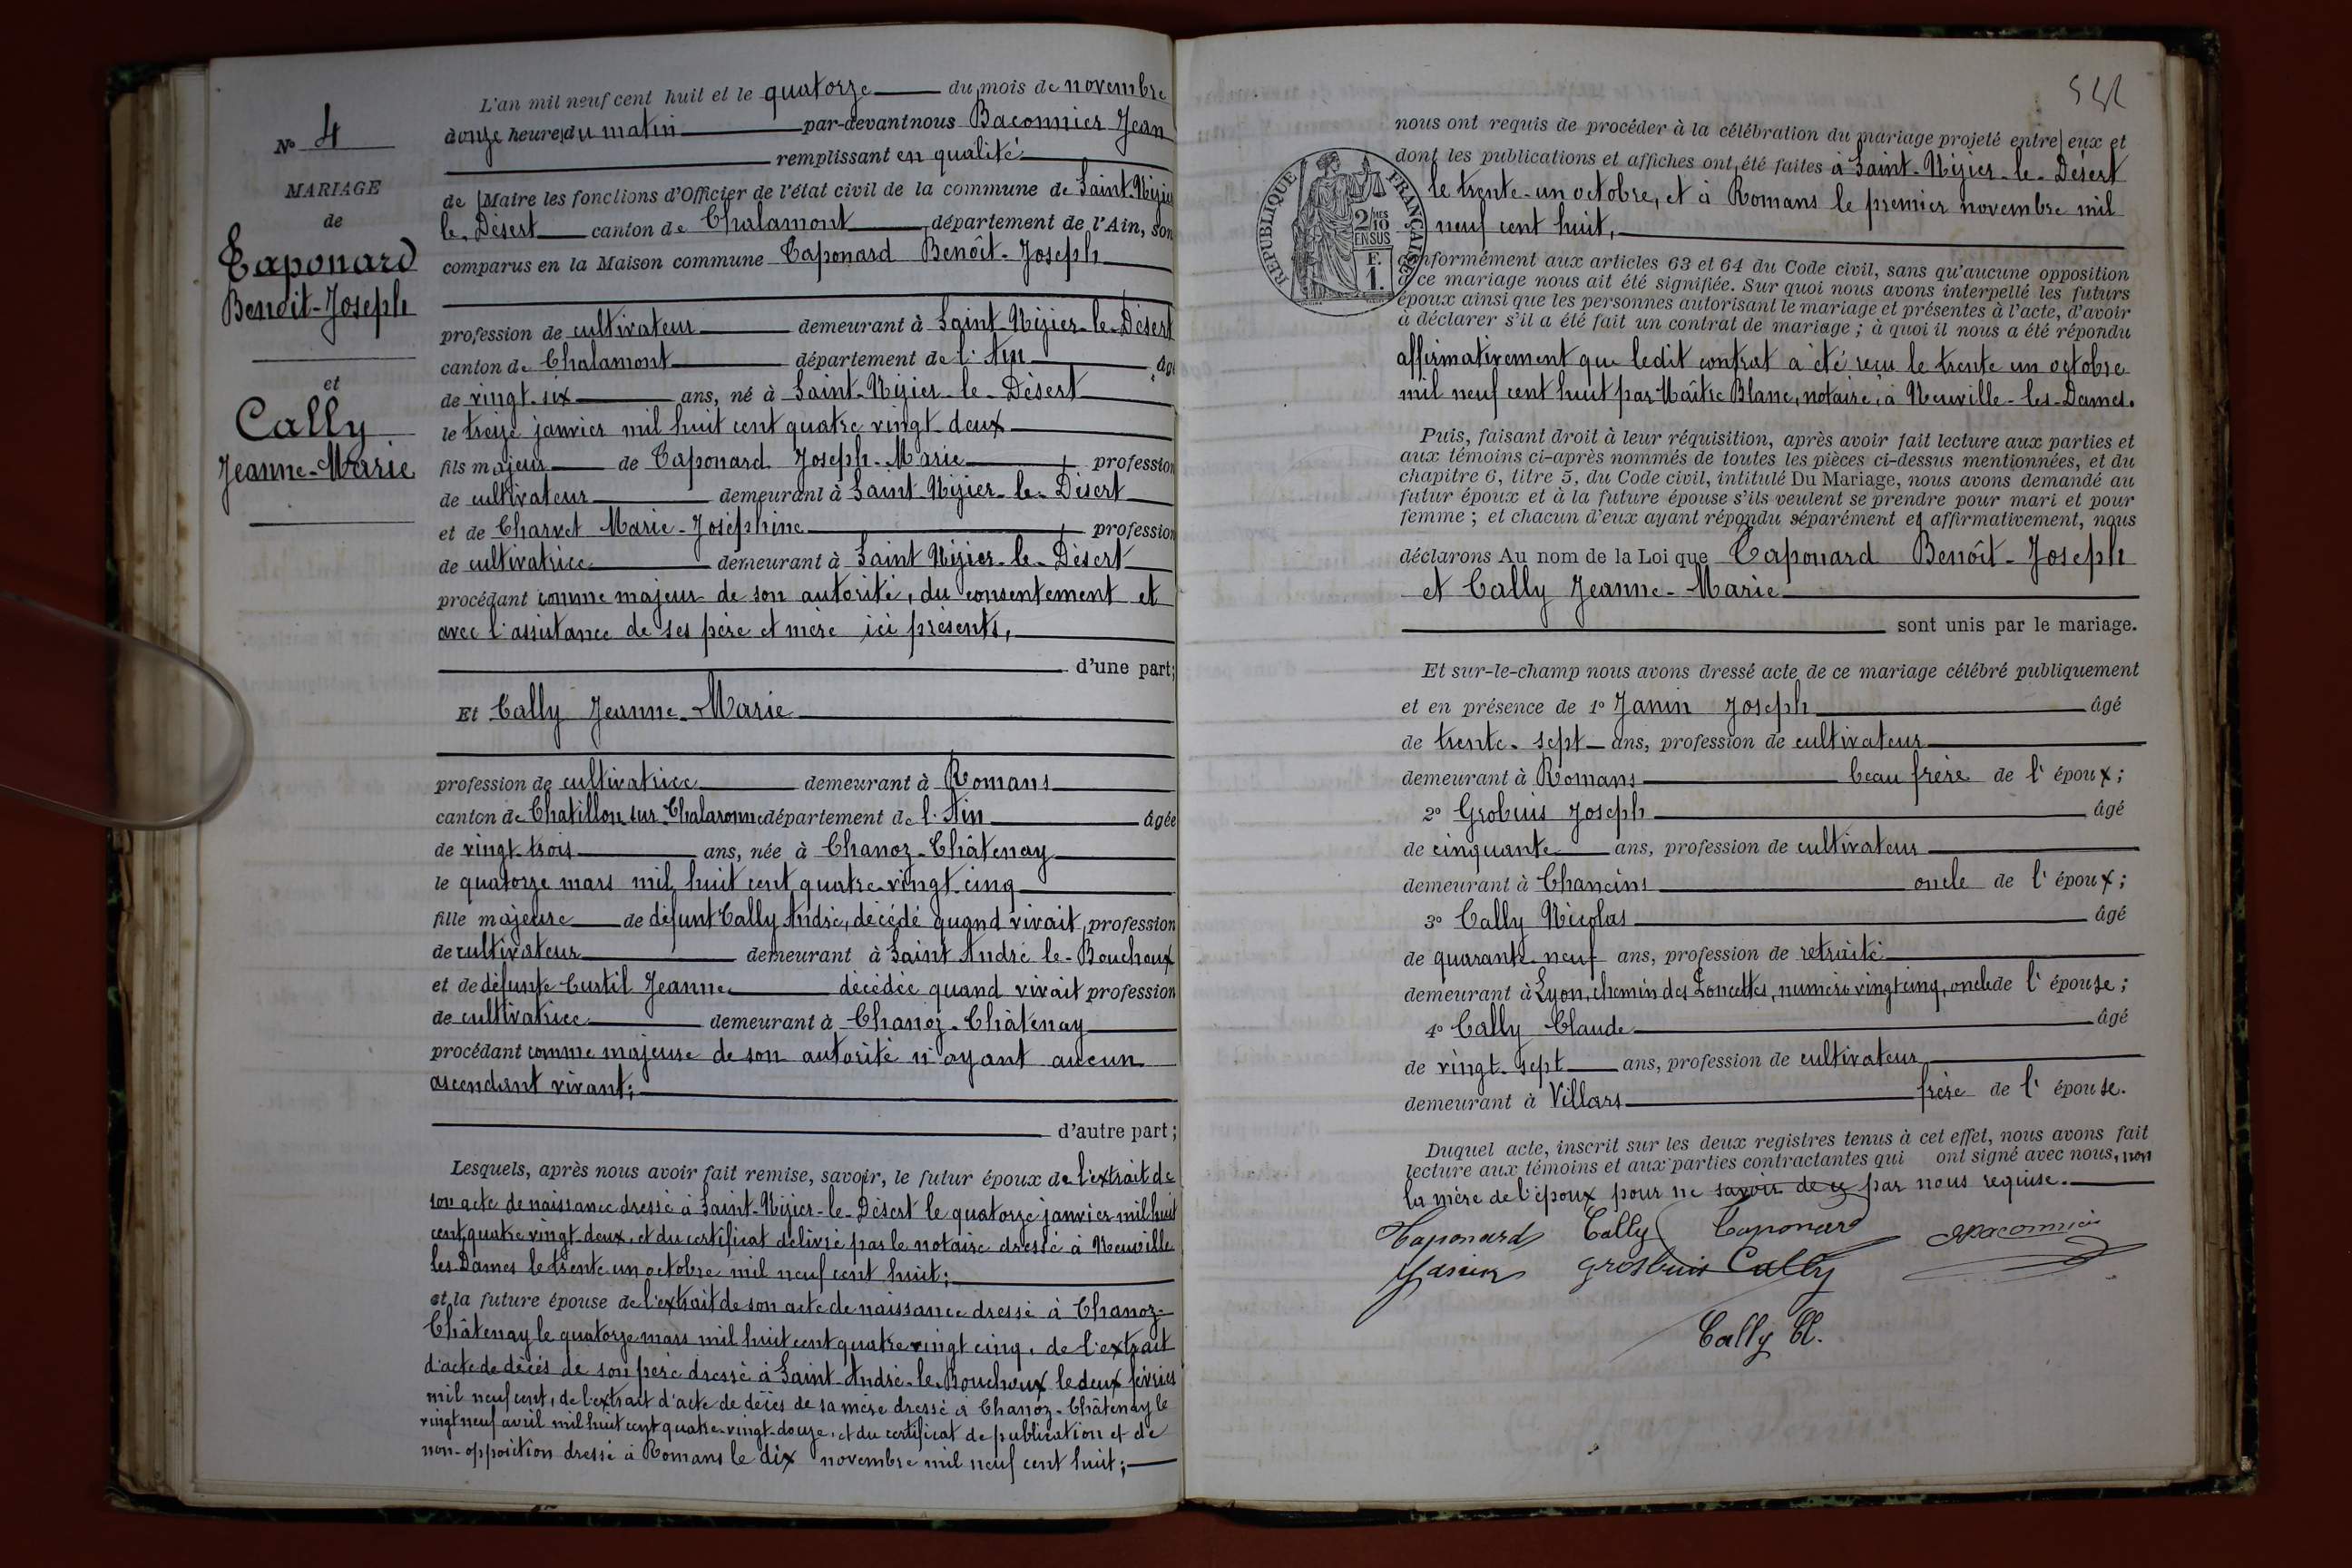 N° 4
MARIAGE
de
Taponard
Benoît-Joseph
et
Cally
Jeanne-Marie
L'an mil neuf cent huit et le quatorze du mois de novembre
à onze heures du matin par-devant nous Baconnier Jean
remplissant en qualité
de Maire les fonctions d'Officier de l'état civil de la commune de Saint-Nizier
le-Désert canton de Chalamont département de l'Ain, son
comparus en la Maison commune Taponard Benoît-Joseph
profession de cultivateur demeurant à Saint-Nizier-le-Désert
canton de Chalamont département de l'Ain âgé
de vingt-six ans, né à Saint-Nizier-le-Désert
le treize janvier mil huit cent quatre vingt-deux
fils majeur de Taponard Joseph-Marie profession
de cultivateur demeurant à Saint-Nizier-le-Désert
et de Charvet Marie-Joséphine profession
de cultivatrice demeurant à Saint Nizier-le-Désert
procédant comme majeur de son autorité, du consentement et
avec l'assistance de ses père et mère ici présents,
d'une part;
Et Cally Jeanne-Marie
profession de cultivatrice demeurant à Romans
canton de Chatillon sur Chalaronne département de l'Ain âgée
de vingt-trois ans, née à Chanoz-Châtenay
le quatorze mars mil huit cent quatre-vingt-cinq
fille majeure de défunt Cally André, décédé quand vivait, profession
de cultivateur demeurant à Saint André le-Bouchoux
et de défunte Curtil Jeanne décédée quand vivait profession
de cultivatrice demeurant à Chanoz-Châtenay
procédant comme majeure de son autorité n'ayant aucun
ascendant vivant;
d'autre part;
Lesquels, après nous avoir fait remise, savoir, le futur époux de l'extrait de
son acte de naissance dressé à Saint-Nizier-le-Désert le quatorze janvier mil huit
cent quatre vingt-deux, et du certificat délivré par le notaire dressé à Neuville
les Dames le trente un octobre mil neuf cent huit;
et la future épouse de l'extrait de son acte de naissance dressé à Chanoz-
Châtenay le quatorze mars mil huit cent quatre vingt cinq, de l'extrait
d'acte de décès de son père dressé à Saint-André-le-Bouchoux le deux février
mil neuf cent, de l'extrait d'acte de décès de sa mère dressé à Chanoz-Châtenay le
vingt neuf avril mil huit cent quatre-vingt-douze, et du certificat de publication et de
non-opposition dressé à Romans le dix novembre mil neuf cent huit;
nous ont requis de procéder à la célébration du mariage projeté entre eux et
dont les publications et affiches ont été faites à Saint-Nizier-le-Désert
le trente-un octobre, et à Romans le premier novembre mil
neuf cent huit,
RÉPUBLIQUE FRANÇAISE
2/10 MES
EN SUS
F.
1.
conformément aux articles 63 et 64 du Code civil, sans qu'aucune opposition
à ce mariage nous ait été signifiée. Sur quoi nous avons interpellé les futurs
époux ainsi que les personnes autorisant le mariage et présentes à l'acte, d'avoir
à déclarer s'il a été fait un contrat de mariage; à quoi il nous a été répondu
affirmativement que ledit contrat a été reçu le trente un octobre
mil neuf cent huit par Maître Blanc, notaire, à Neuville-les-Dames.
Puis, faisant droit à leur réquisition, après avoir fait lecture aux parties et
aux témoins ci-après nommés de toutes les pièces ci-dessus mentionnées, et du
chapitre 6, titre 5, du Code civil, intitulé Du Mariage, nous avons demandé au
futur époux et à la future épouse s'ils veulent se prendre pour mari et pour
femme; et chacun d'eux ayant répondu séparément et affirmativement, nous
déclarons Au nom de la Loi que Taponard Benoît-Joseph
et Cally Jeanne-Marie
sont unis par le mariage.
Et sur-le-champ nous avons dressé acte de ce mariage célébré publiquement
et en présence de 1° Janin Joseph âgé
de trente-sept ans, profession de cultivateur
demeurant à Romans beau frère de l'époux;
2° Grobuis Joseph âgé
de cinquante ans, profession de cultivateur
demeurant à Chaneins oncle de l'époux;
3° Cally Nicolas âgé
de quarante-neuf ans, profession de retraité
demeurant à Lyon, chemin des numéro vingt cinq, oncle de l'épouse;
4° Cally Claude âgé
de vingt-sept ans, profession de cultivateur
demeurant à Villars frère de l'épouse.
Duquel acte, inscrit sur les deux registres tenus à cet effet, nous avons fait
lecture aux témoins et aux parties contractantes qui ont signé avec nous, non
la mère de l'époux pour ne savoir de ce par nous requise.
Taponard Cally Taponard Baconnier
Janin Grosbuis Cally
Cally Cl.